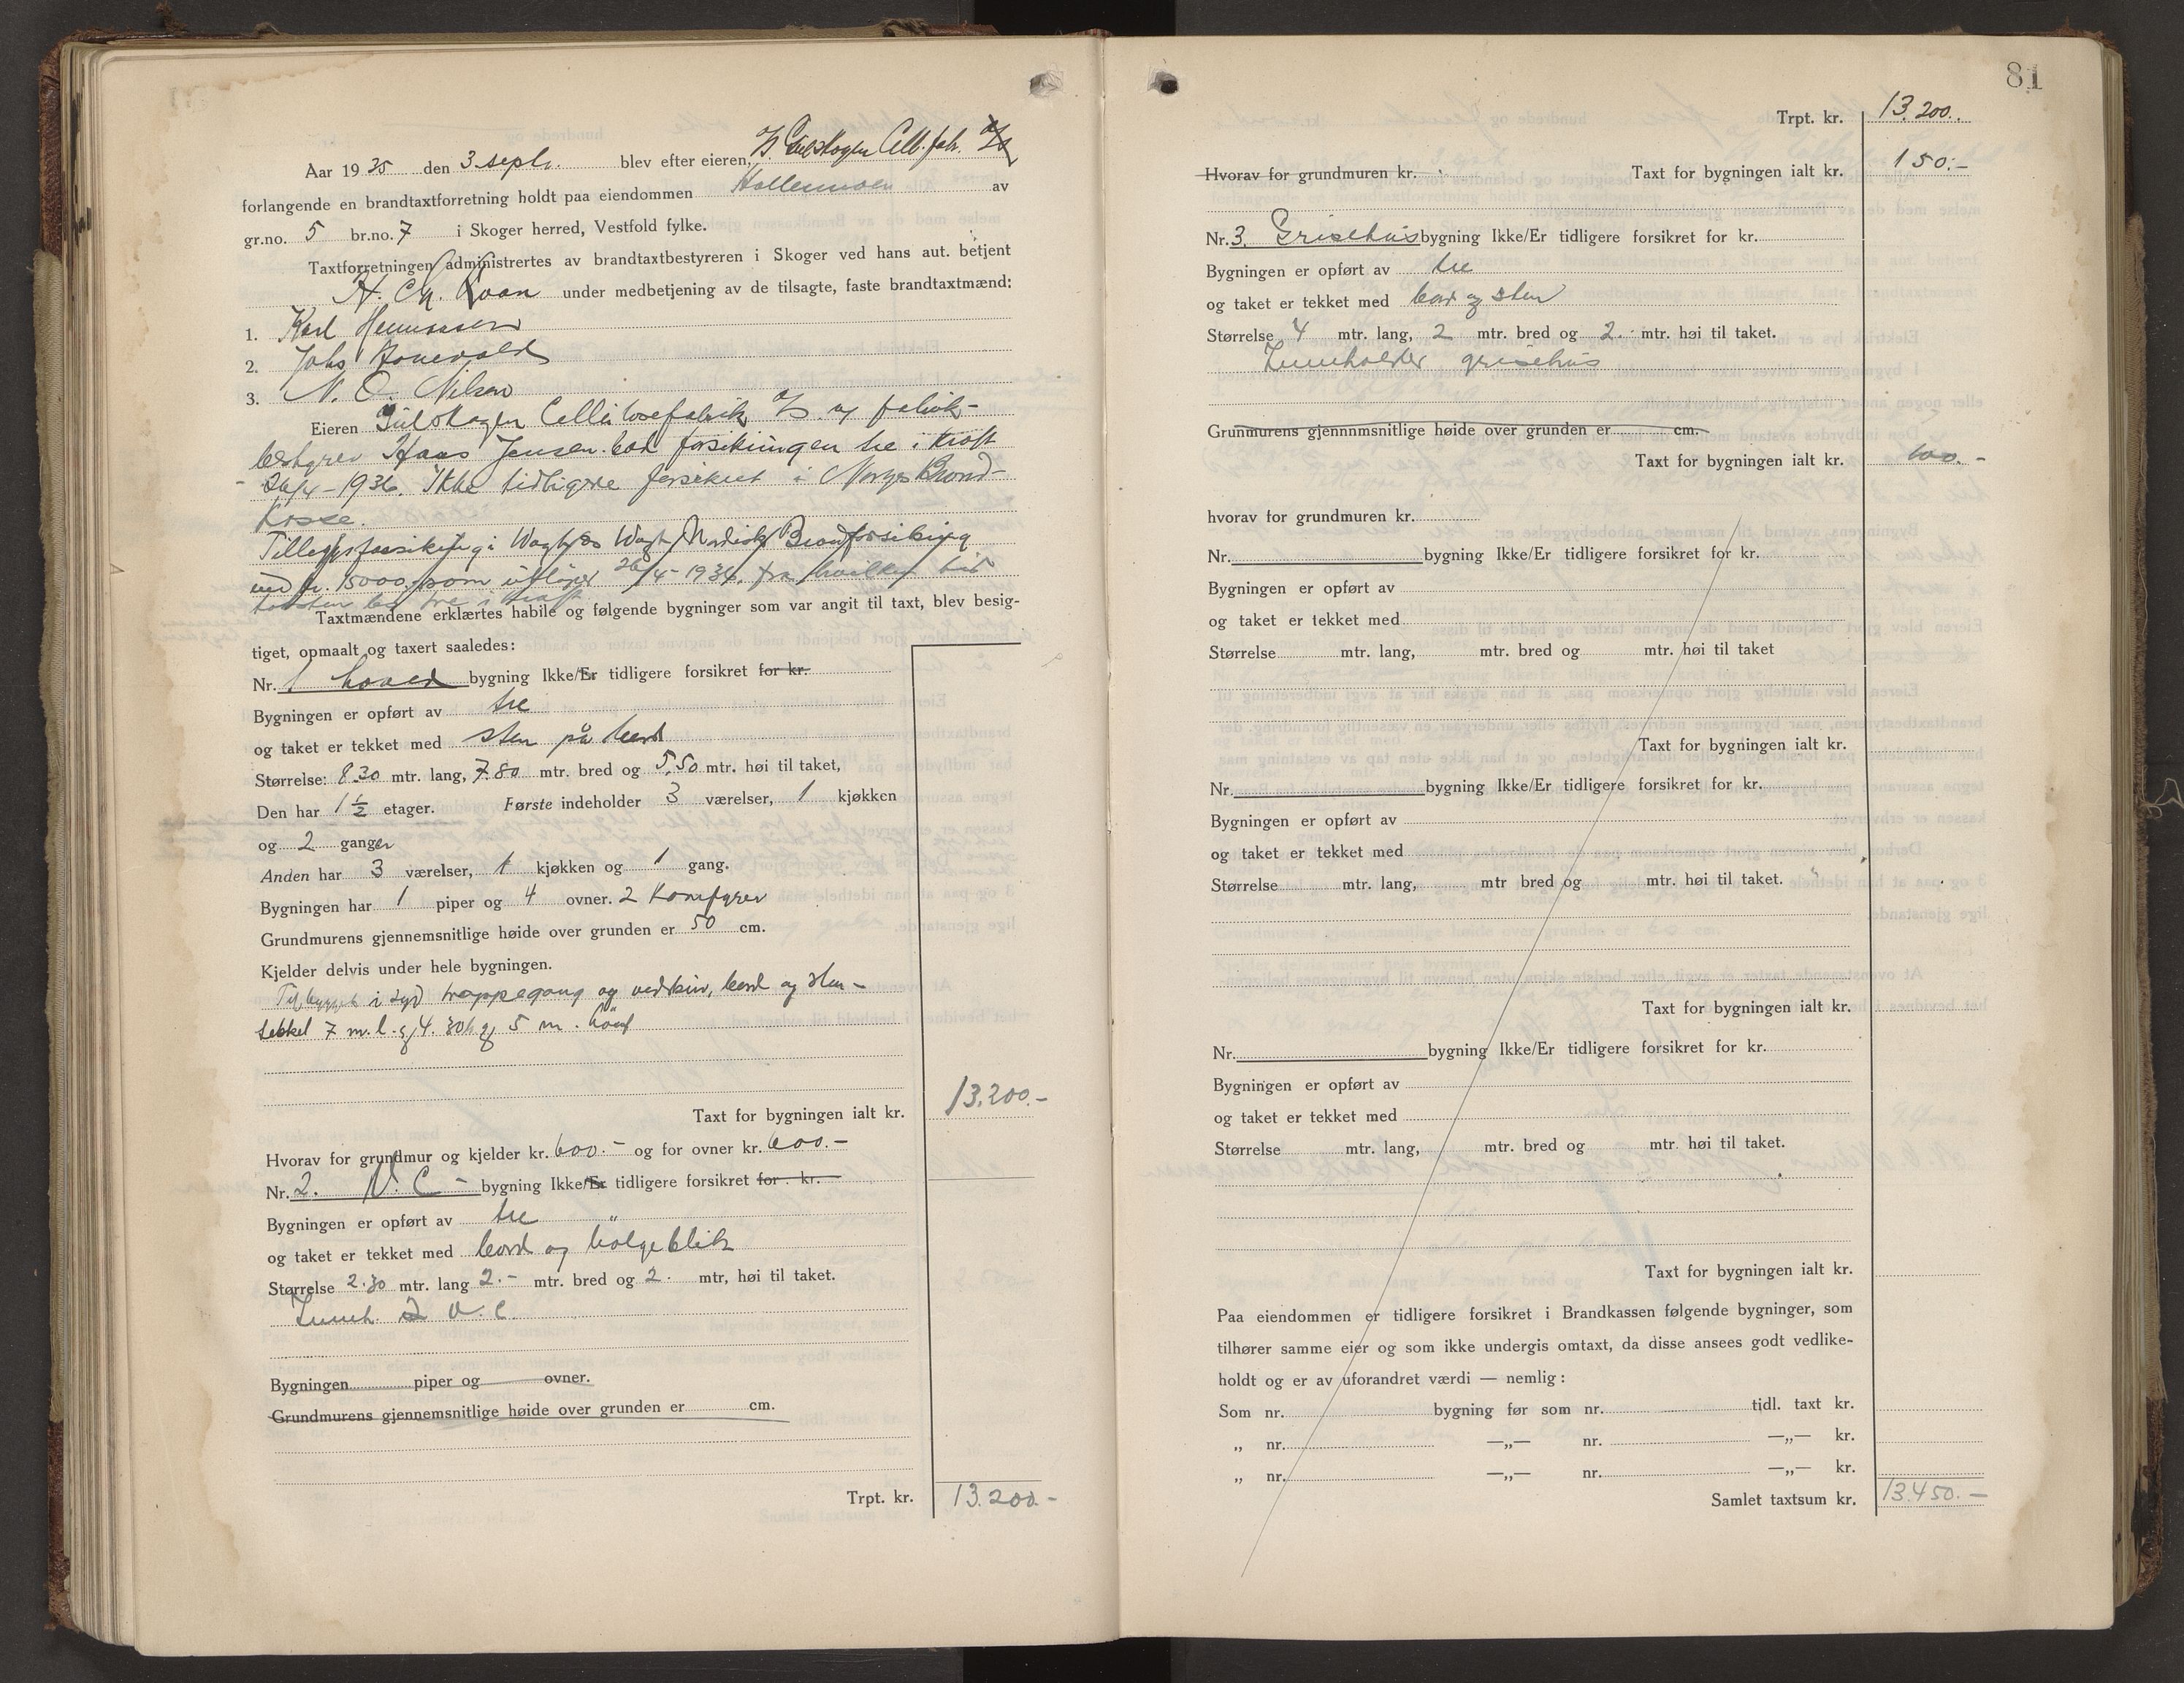 Aar 1935 den 3. septr. blev efter eieren, A/S Gulskogen Cell. fabr. A/S
forlangende en brandtaxtforretning holdt paa eiendommen av
gr.no. 5 br.no. 7 i Skoger herred, Vestfold fylke.
Taxtforretningen administrertes av brandtaxtbestyreren i Skoger ved hans aut. betjent
H. Chr. under medbetjening av de tilsagte, faste brandtaxtmænd:
1. Karl
2. Johs
3. N. O. Nilsen
Eieren Gulskogen Cellulosefabrik A/S og fabrik-
bestyrer Hans Jensen bad forsikringen tre i kraft
26/4 - 1936. Ikke tidligere forsikret i Norges Brand-
kasse.
Tilleggsforsikring i Nordisk Brandforsikring
ved kr. 15000 som utløper 26/4 - 1936, fra hvilken tid
taksten bes tre i kraft.
Taxtmændene erklærtes habile og følgende bygninger som var angit til taxt, blev besig-
tiget, opmaalt og taxert saaledes:
Nr. 1 hoved bygning Ikke/Er tidligere forsikret for kr.
Bygningen er opført av tre
og taket er tekket med sten på bord
Størrelse: 8.30 mtr. lang, 7.80 mtr. bred og 5.50 mtr. høi til taket,
Den har 1 1/2 etager. Første indeholder 3 værelser, 1 kjøkken
og 2 ganger
Anden har 3 værelser, 1 kjøkken og 1 gang.
Bygningen har 1 piper og 4 ovner. 2 Komfyrer
Grundmurens gjennemsnitlige høide over grunden er 50 cm.
Kjelder delvis under hele bygningen.
Tilbygget i syd trappegang og vedskur, bord og sten-
tekket 7 m. l. og 4.30 b. og 5 m. høit
Taxt for bygningen ialt kr. 13.200.-
Hvorav for grundmur og kjelder kr. 600.- og for ovner kr. 600.-
Nr. 2. V. C - bygning Ikke/Er tidligere forsikret for kr.
Bygningen er opført av tre "
og taket er tekket med bord og bølgeblik
Størrelse 2.30 mtr. lang 2.- mtr. bred og 2. mtr, høi til taket.
Inneh. 2 V. C.
Bygningen piper og ovner.
Grundmurens gjennemsnitlige høide over grunden er cm.
Trpt. kr. 13.200.-
81
Trpt. kr. 13.200.
Hvorav for grundmuren kr. Taxt for bygningen ialt kr. 150.-
Nr. 3. Grisehus bygning Ikke/Er tidligere forsikret for kr.
Bygningen er opført av tre
og taket er tekket med bord og sten
Størrelse 4 mtr. lang, 2 mtr. bred og 2. mtr. høi til taket.
Inneholder grisehus
Grunmurens gjennnmsnitlige høide over grunden er cm.
Taxt for bygningen ialt kr. 100.-
hvorav for grundmuren kr.
Nr. bygning Ikke/Er tidligere forsikret for kr.
Bygningen er opført av
og taket er tekket med
Størrelse mtr. lang, mtr. bred og mtr. høi til taket
Taxt for bygningen ialt kr.
Nr. bygning Ikke/Er tidligere forsikret for kr.
Bygningen er opført av
og taket er tekket med
Størrelse mtr. lang, mtr bred og mtr. høi til taket.
Taxt for bygningen ialt kr.
Nr. bygning Ikke/Er tidligere forsikret for kr.
Bygningen er opført av
og taket er tekket med
Størrelse mtr. lang, mtr. bred og mtr. høi til taket.
Taxt for bygningen ialt kr.
Paa eiendommen er tidligere forsikret i Brandkassen følgende bygninger, som
tilhører samme eier og som ikke undergis omtaxt, da disse ansees godt vedlike-
holdt og er av uforandret værdi — nemlig:
Som nr. bygning før som nr. tidl. taxt kr.
„ nr. —„— nr. —„— kr.
„ nr. —„— nr. —„— kr.
Samlet taxtsum kr. 13.450.-